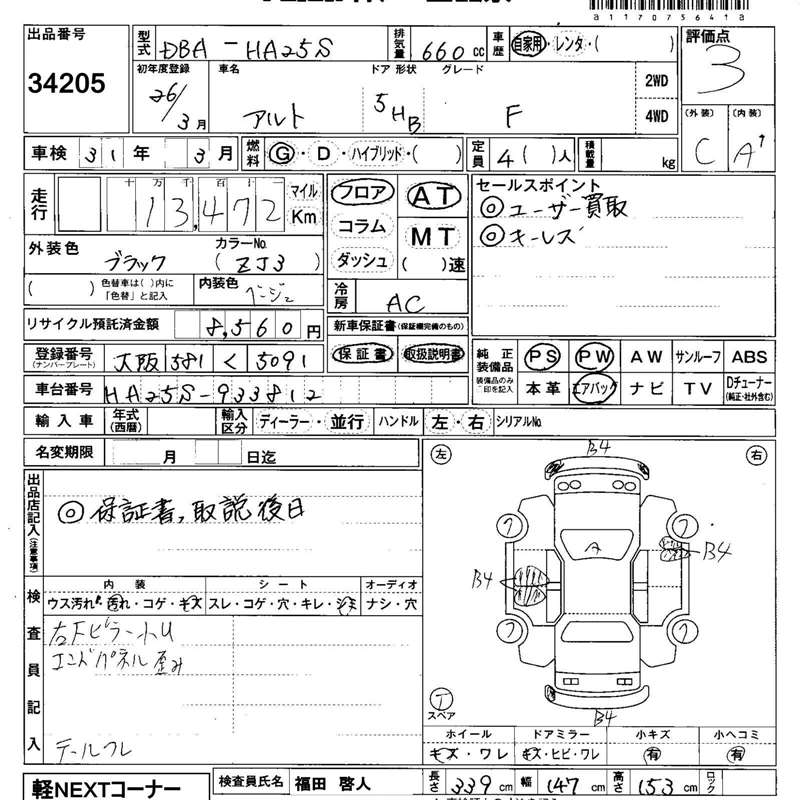 a11707564 1a
出品番号 型式 DBA-HA25S 排気量 660cc 車歴 自家用・レンタ・( ) 評価点
34205 3
初年度登録 車名 ドア 形状 グレード 2WD
26/3月 アルト 5 HB F 4WD
(外装) (内装)
C A↑
車検 31年 3月 燃料 G・D・ハイブリッド・( ) 定員 4( )人 積載量 kg
走行 十 万 千 百 十 マイル
13,472 Km
フロア AT
コラム MT
ダッシュ ( )速
セールスポイント
◎ユーザー買取
◎キーレス
外装色 ブラック カラーNo. (ZJ3)
( ) 色替車は( )内に「色替」と記入 内装色 ベージュ
冷房 AC
リサイクル預託済金額 8,560円
新車保証書(保証欄完備のもの)
保証書 取扱説明書
登録番号 (ナンバープレート) 大阪 581 く 5091
純正装備品 装備品のみ○印を記入
PS PW AW サンルーフ ABS
本革 エアバッグ ナビ TV Dチューナー (純正・社外含む)
車台番号 HA25S-933812
輸入車 年式(西暦) 輸入区分 ディーラー・並行 ハンドル 左・右 シリアルNo.
名変期限 月 日迄
出品店記入(注意事項)
◎保証書,取説後日
左 右
B4
A
B4
B4
B4
T スペア
検査員記入
内装 シート オーディオ
ウス汚れ・汚れ・コゲ・キズ スレ・コゲ・穴・キレ・シミ ナシ・穴
右Fピラー小U
エンドパネル歪み
テールワレ
ホイール ドアミラー 小キズ 小ヘコミ
キズ・ワレ キズ・ヒビ・ワレ 有 有
軽NEXTコーナー 検査員氏名 福田 啓人 長さ 339cm 幅 147cm 高さ 153cm ロック